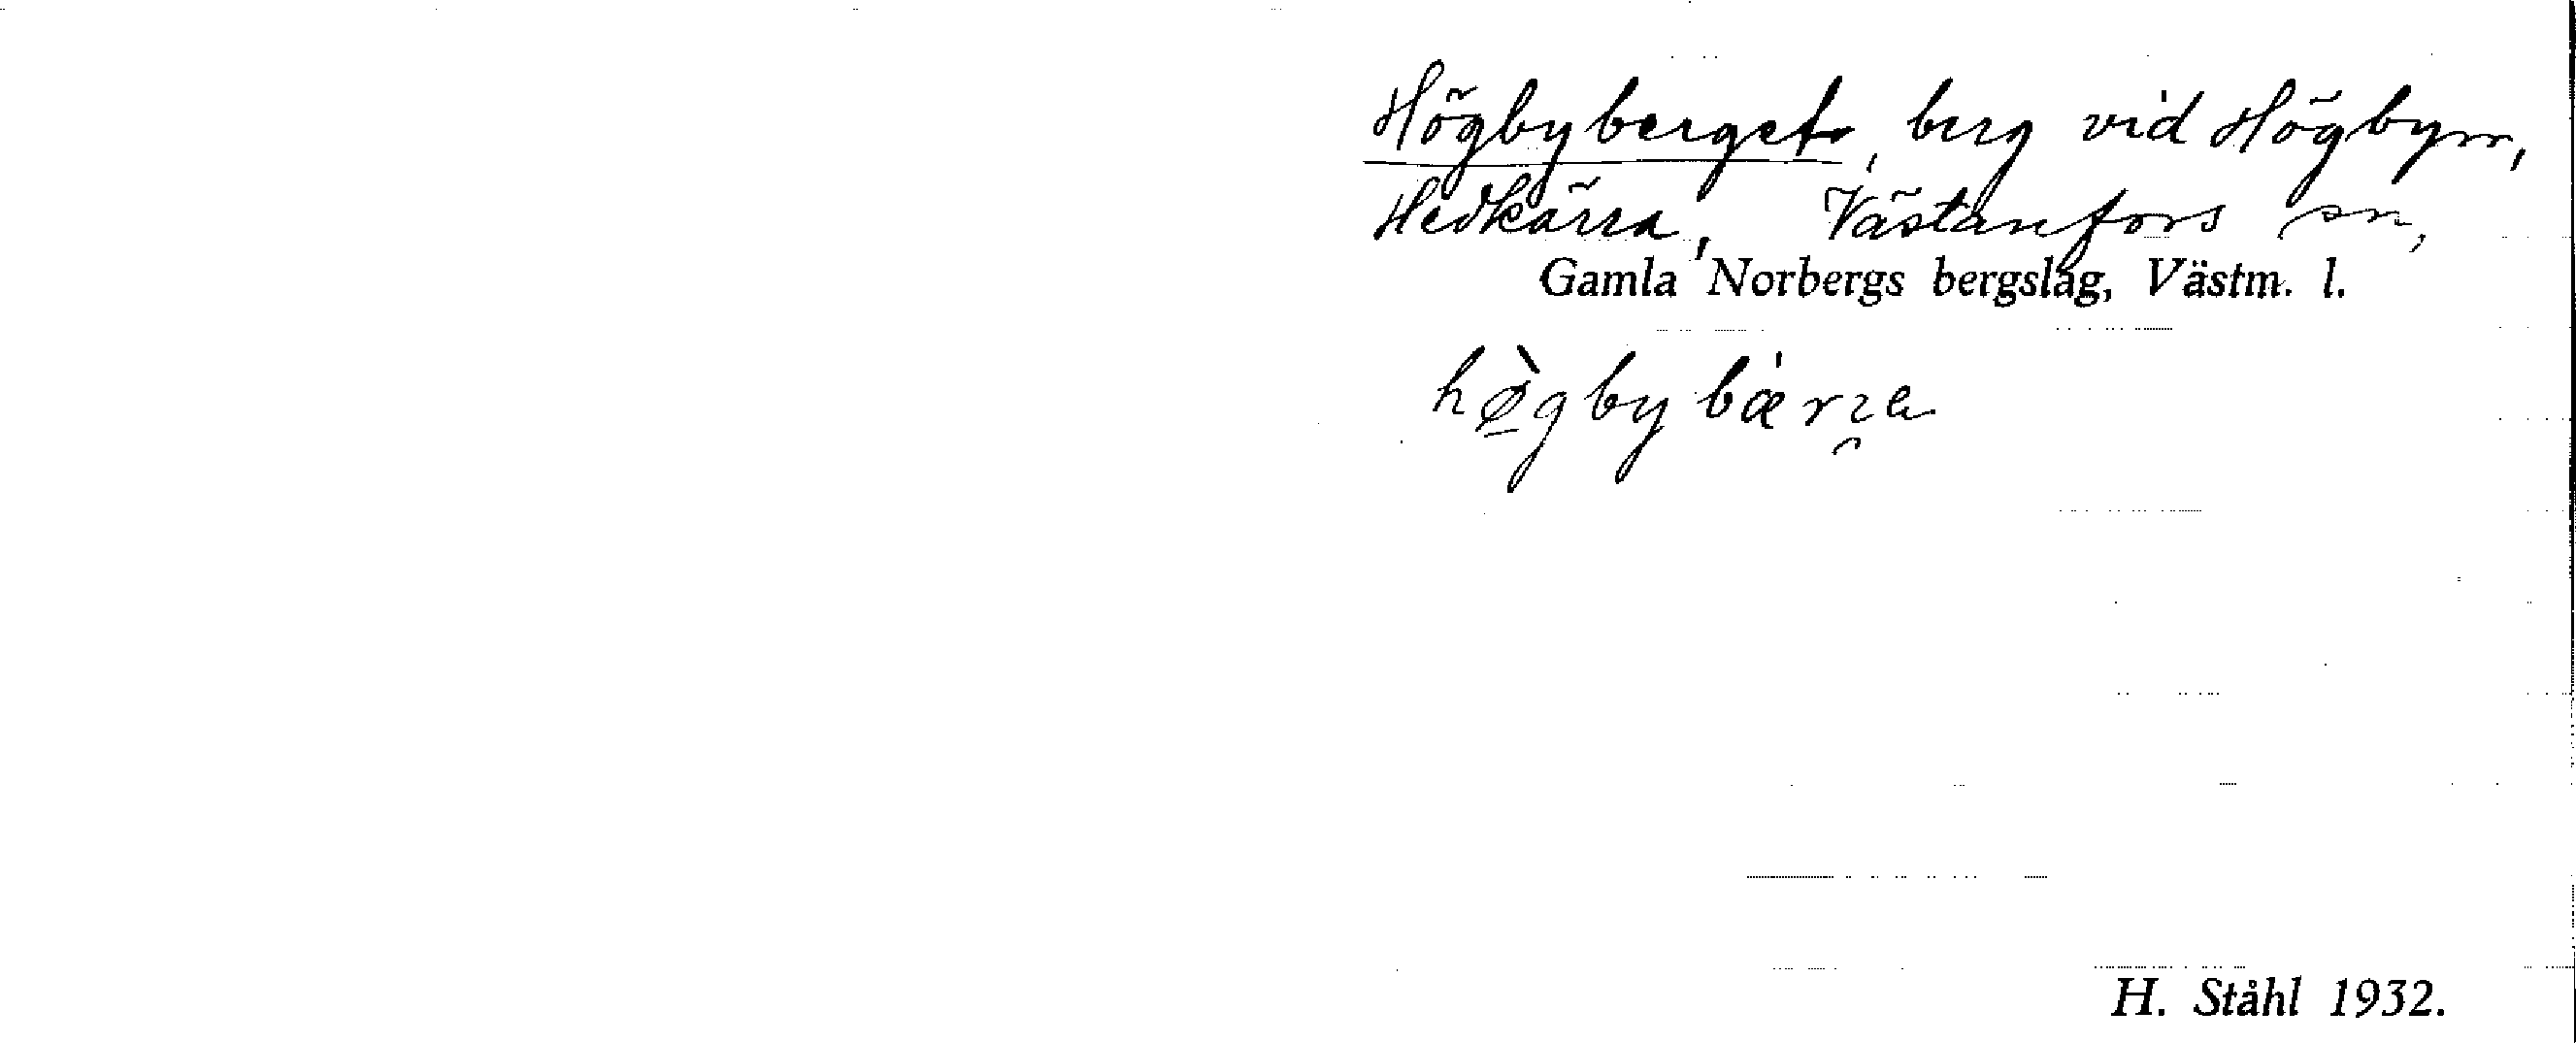 Högbyberget, berg vid Högbyn,
Hedkärra, Västanfors sn,
Gamla Norbergs bergslag, Västm. l.
hø̲̀gbybæ̀rꞅa
H. Ståhl 1932.